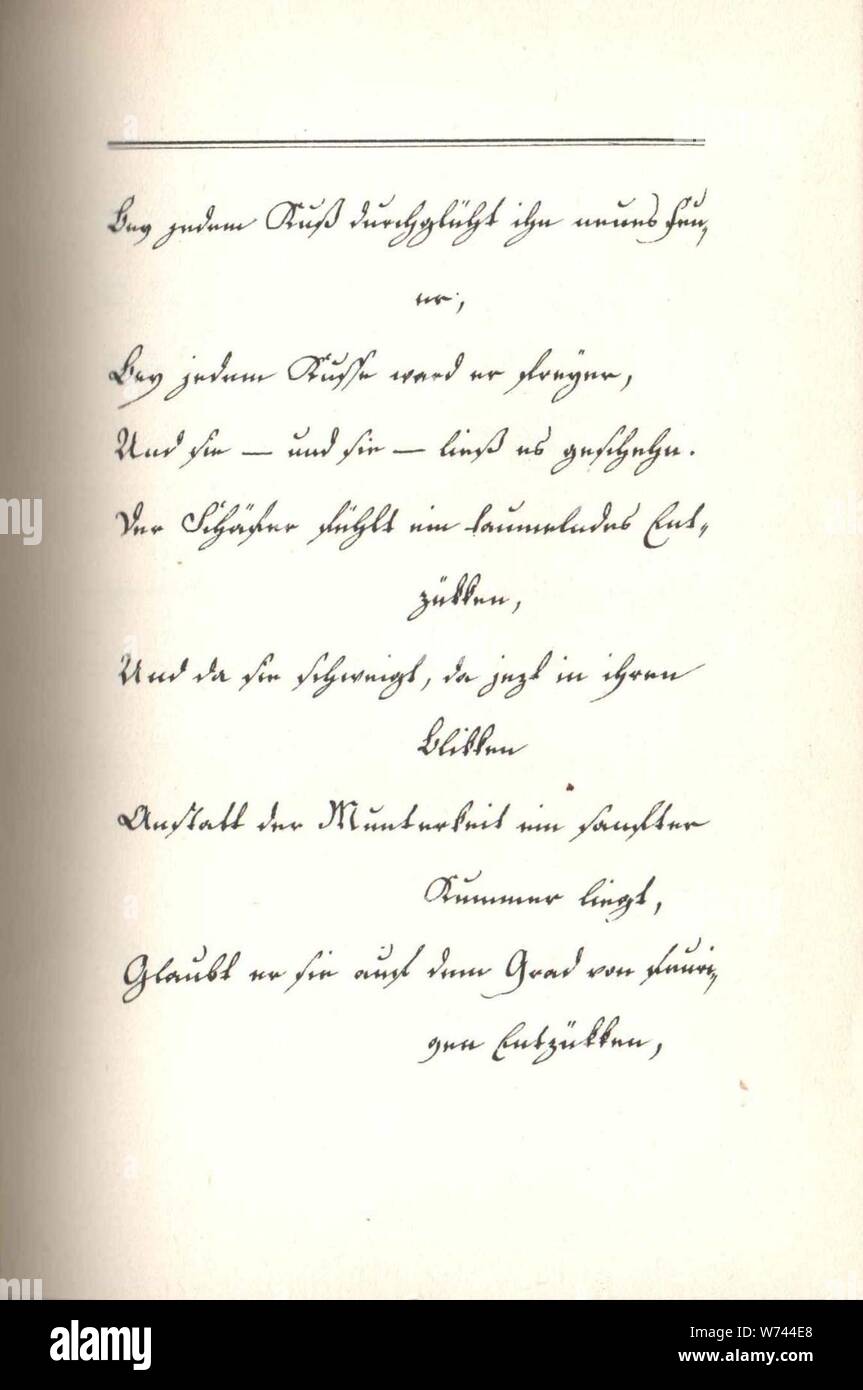 Bey jedem Kuß durchglüht ihn neues Feu-
er,
Bey jedem Kusse ward er freyer,
Und sie — und sie — ließ es geschehn.
Der Schäfer fühlt ein taumelndes Ent-
zükken,
Und da sie schweigt, da jezt in ihren
Blikken
Anstatt der Munterkeit ein sanfter
Kummer liegt,
Glaubt er sie auf dem Grad von feuri-
gen Entzükken,
alamy
Image ID: W744E8
www.alamy.com